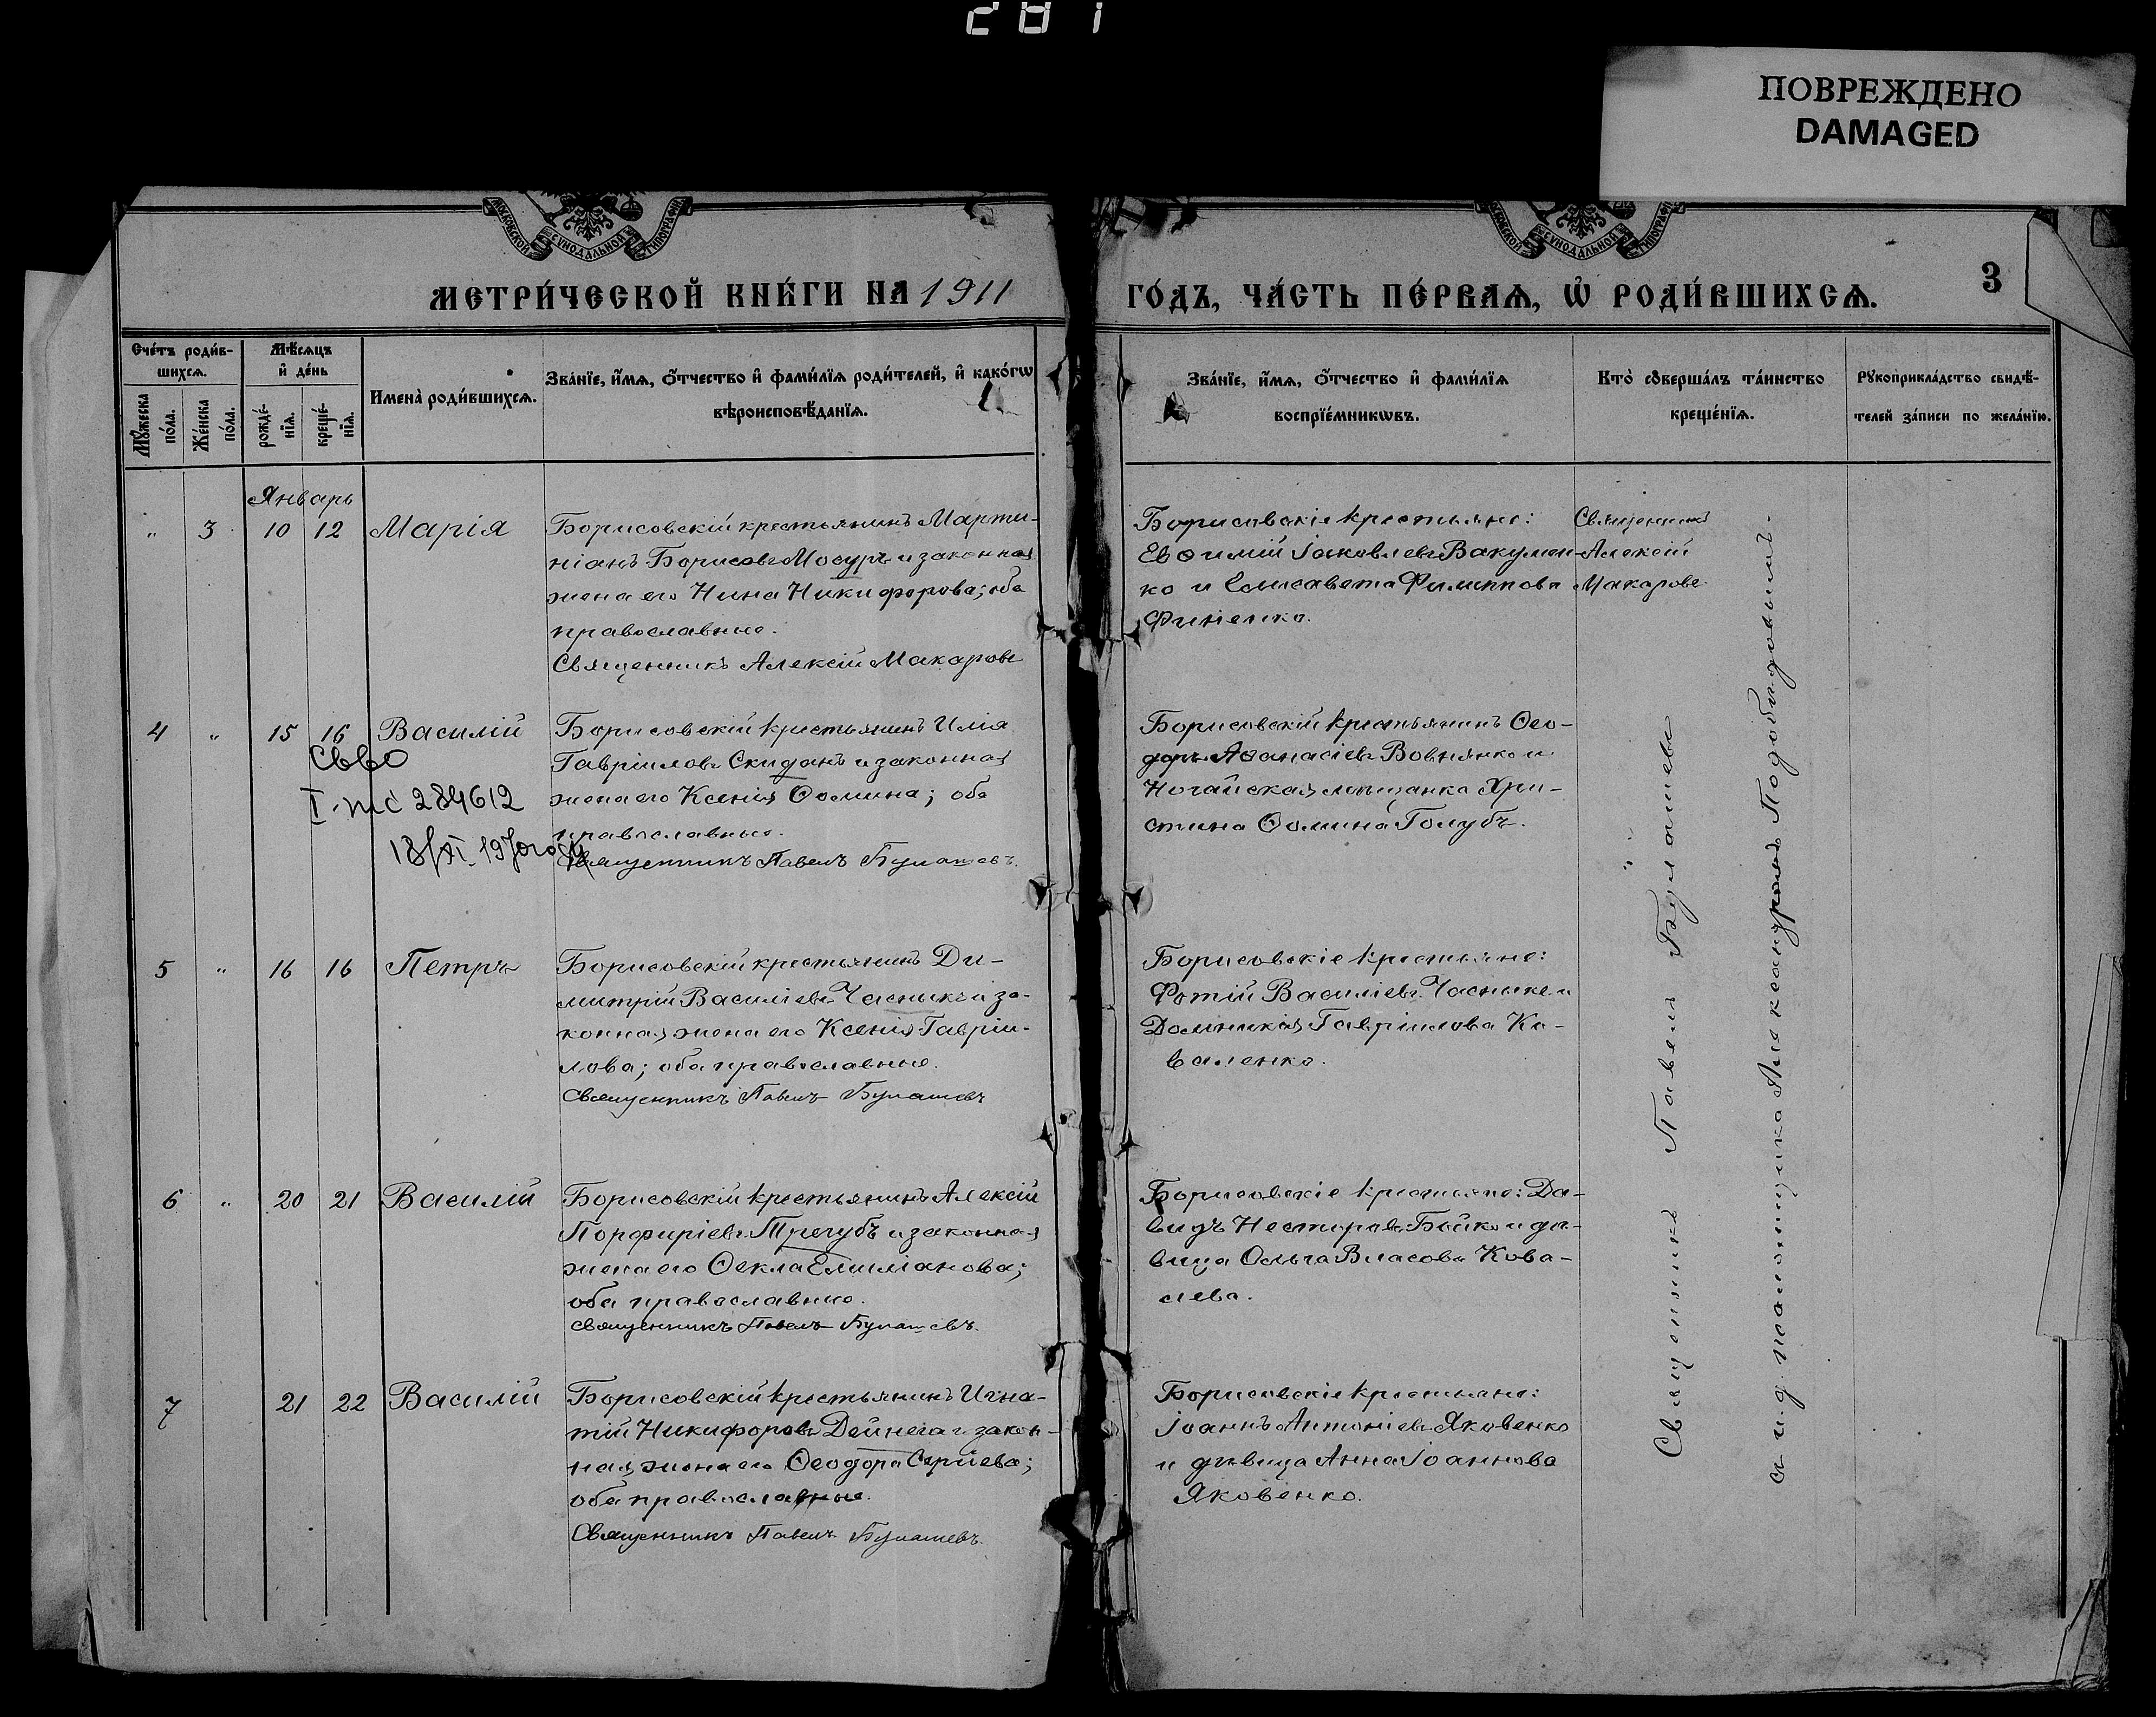 281
ПОВРЕЖДЕНО
DAMAGED
МОСКОВСКОЙ СѴНОДАЛЬНОЙ ТИПОГРАФІИ
МОСКОВСКОЙ СѴНОДАЛЬНОЙ ТИПОГРАФІИ
МЕТРИ́ЧЕСКОЙ КНИ́ГИ НА 1911 ГО́ДЪ, ЧА́СТЬ ПЕ́РВАѦ, Ѽ РОДИ́ВШИХСѦ.
3
Сче́тъ роди́в-
шихсѧ.
Мꙋ́жеска по́ла.
Же́нска по́ла.
Мѣ́сѧцъ
и҆ де́нь
рожде́-
нїѧ.
креще́-
нїѧ.
Имена̀ роди́вшихсѧ.
Зва́нїе, и҆́мѧ, ѻ҆́тчество и҆ фами́лїѧ роди́телей, и҆ како́гѡ
вѣроисповѣ́данїѧ.
Зва́нїе, и҆́мѧ, ѻ҆́тчество и҆ фами́лїѧ
воспрїе́мникѡвъ.
Кто̀ соверша́лъ та́инство
креще́нїѧ.
Рꙋкоприкла́дство свидѣ́-
телей за́писи по жела́нїю.
Январь
„ 3 10 12 Марія
Борисовскій крестьянинъ Марти-
ніанъ Борисовъ Мосуръ и законная
жена его Нина Никифорова; оба
православные.
Священникъ Алексій Макаровъ
Борисовскіе крестьяне:
Евѳимій Іаковлевъ Вакулен-
ко и Елисавета Филиппова
Финенко.
Священникъ
Алексій
Макаровъ
4 „ 15 16 Василій
Свво
I-ЖС 284612
Борисовскій крестьянинъ Илія
Гавріиловъ Скиданъ и законная
жена его Ксенія Ѳомина; оба
православные.
Священникъ Павелъ Булашевъ.
Борисовскій крестьянинъ Ѳео-
доръ Аѳанасіевъ Вовнянко и
Ногайская мѣщанка Хри-
стина Ѳомина Голубъ.
5 „ 16 16 Петръ
Борисовскій крестьянинъ Ди-
митрій Василіевъ Часникъ и за-
конная жена его Ксенія Гавріи-
лова; оба православные.
Священникъ Павелъ Булашевъ
Борисовскіе крестьяне:
Фотій Василіевъ Часникъ и
Домникія Гавріилова Ко-
валенко.
6 „ 20 21 Василій
Борисовскій крестьянинъ Алексій
Порфиріевъ Трегубъ и законная
жена его Ѳекла Емиліанова;
оба православные.
Священникъ Павелъ Булашевъ.
Борисовскіе крестьяне: Да-
видъ Несторовъ Бойко и дѣ-
вица Ольга Власова Кова-
лева.
7 21 22 Василій
Борисовскій крестьянинъ Игна-
тій Никифоровъ Дейнега и закон-
ная жена его Ѳеодора Сергіева;
оба православные.
Священникъ Павелъ Булашевъ.
Борисовскіе крестьяне:
Іоаннъ Антоніевъ Яковенко
и дѣвица Анна Іоаннова
Яковенко.
Священникъ Павелъ Булашевъ
съ и. д. псаломщика Александромъ